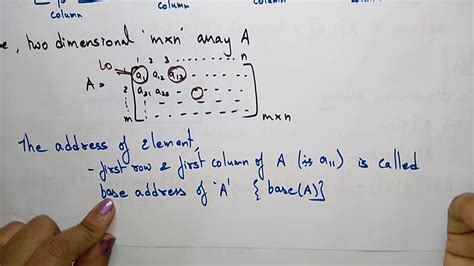 column column
, two dimensional 'm×n' array A
1 2 3 n
10 1 a1 a12 a13
A = 2 a21 a22
m m×n
The address of element,
- first row & first column of A (is a11) is called
base address of 'A' {base(A)}